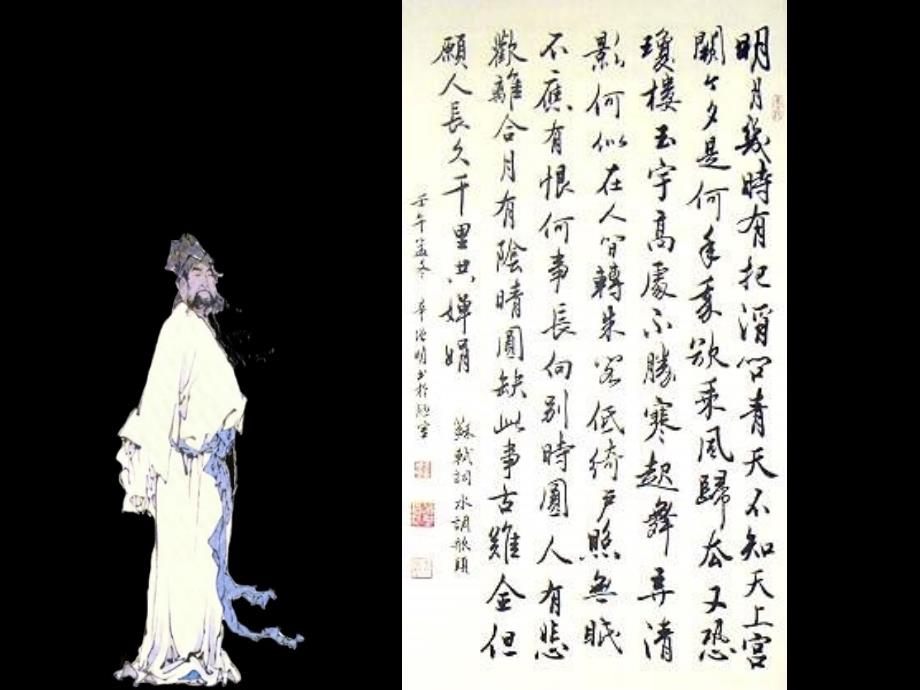 明月幾時有把酒问青天不知天上宮
闕今夕是何年我欲乘風歸去又恐
瓊樓玉宇高處不勝寒起舞弄清
影何似在人间轉朱閣低綺戶照無眠
不應有恨何事長向別時圓人有悲
歡離合月有陰晴圓缺此事古難全但
願人長久千里共嬋娟
蘇軾詞水調歌頭
壬午孟冬